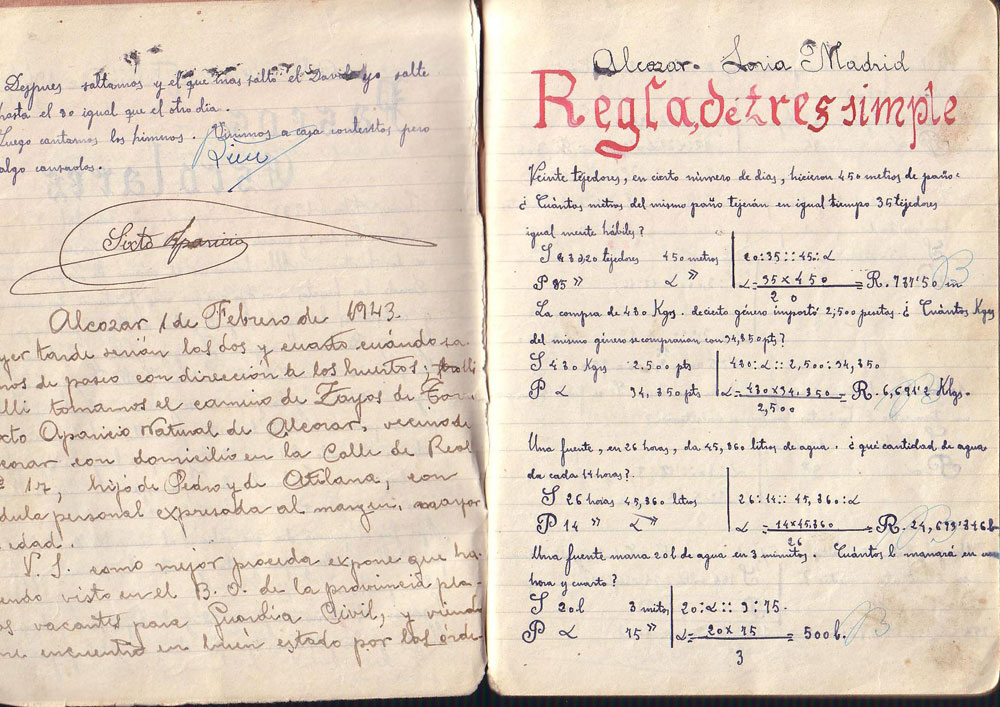 Despues saltamos y el que mas saltó el David yo salte
hasta el 30 igual que el otro dia.
Luego cantamos los himnos. Vinimos a casa contentos pero
algo cansados.
Bien
Sixto Aparicio
Alcozar 1 de Febrero de 1943.
yer tarde serián las dos y cuarto cuándo sa-
mos de paseo con dirección a los huertos;
lli tomamos el camino de Zayas de Tor.
xto Aparicio Natural de Alcozar, vecino de
cozar con domicilio en la Calle de Real
º 17, hijo de Pedro y de Atilana, con
dula personal expresada al margui, mayor
edad.
V. S. como mejor proceda expone que ha-
endo visto en el B. O. de la provincia pla-
as vacantes para Guardia Civil, y viend
ne encuentra en buén estado por las órde
Alcozar. Soria Madrid
Regla, de tres simple
Veinte tejedores, en cierto número de dias, hicieron 450 metros de paño:
¿ Cuántos metros del mismo paño tejerán en igual tiempo 35 tejedores
igual mente hábiles?
S 20 tejedores 450 metros 20:35::45:α
P 35 » α » α = 35 x 450 = R. 787'50 m
20
La compra de 430 Kgs. de cierto género importó 2,500 pesetas. ¿ Cuántos Kgs
del mismo género se comprarian con 34,850 pts?
S 430 Kgs 2.500 pts 430:α::2,500:34,350
P α 34,350 pts α = 430 x 34,350 = R. Klgs.
2,500
Una fuente, en 26 horas, da 45,360 litros de agua. ¿ qué cantidad de agua
da cada 14 horas?
S 26 horas 45,360 litros 26:14::45,360:α
P 14 » α » α = 14 x 45.360 = R. 24,
26
Una fuente mana 20 l de agua en 3 minutos. Cuántos l manará en
hora y cuarto?
S 20 l 3 mitos 20:α::3:75.
P α 75 » α = 20 x 75 = 500 l.
3